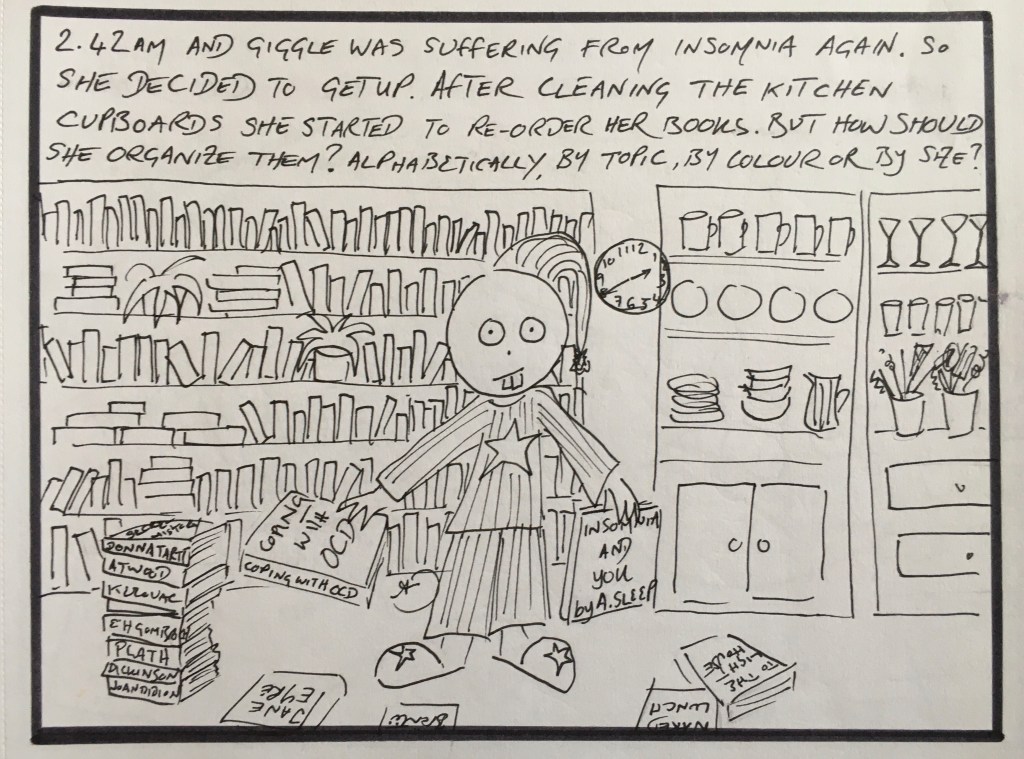 2.42AM AND GIGGLE WAS SUFFERING FROM INSOMNIA AGAIN. SO
SHE DECIDED TO GETUP. AFTER CLEANING THE KITCHEN
CUPBOARDS SHE STARTED TO RE-ORDER HER BOOKS. BUT HOW SHOULD
SHE ORGANIZE THEM? ALPHABETICALLY, BY TOPIC, BY COLOUR OR BY SIZE?
10 11 12 1
7 6 5 4
COPING
WITH
OCD
COPING WITH OCD
INSOMNIA
AND
YOU
by A. SLEEP
DONNA TARTT
ATWOOD
PLATH
DICKINSON
JOAN DIDION
JANE
EYRE
TO THE
LIGHT
HOUSE
NAKED
LUNCH